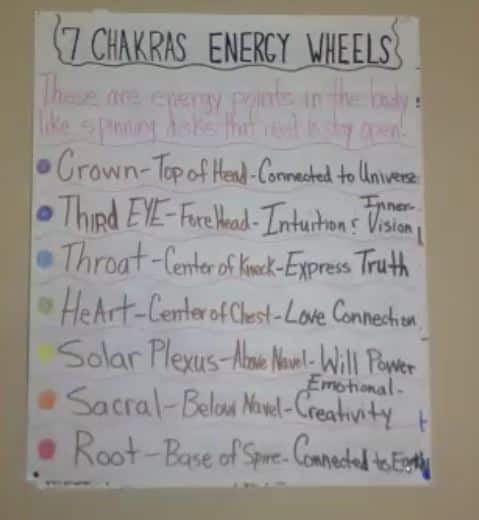 7 CHAKRAS ENERGY WHEELS
These are energy points in the body
like spinning disks that need to stay open!
Crown-Top of Head-Connected to Universe
Third EYE-ForeHead-Intuition & Inner-Vision
Throat-Center of Kneck-Express Truth
HeArt-Center of Chest-Love Connection
Solar Plexus-Above Navel-Will Power
Sacral-Below Navel-Emotional-Creativity
Root-Base of Spine-Connected to Earth